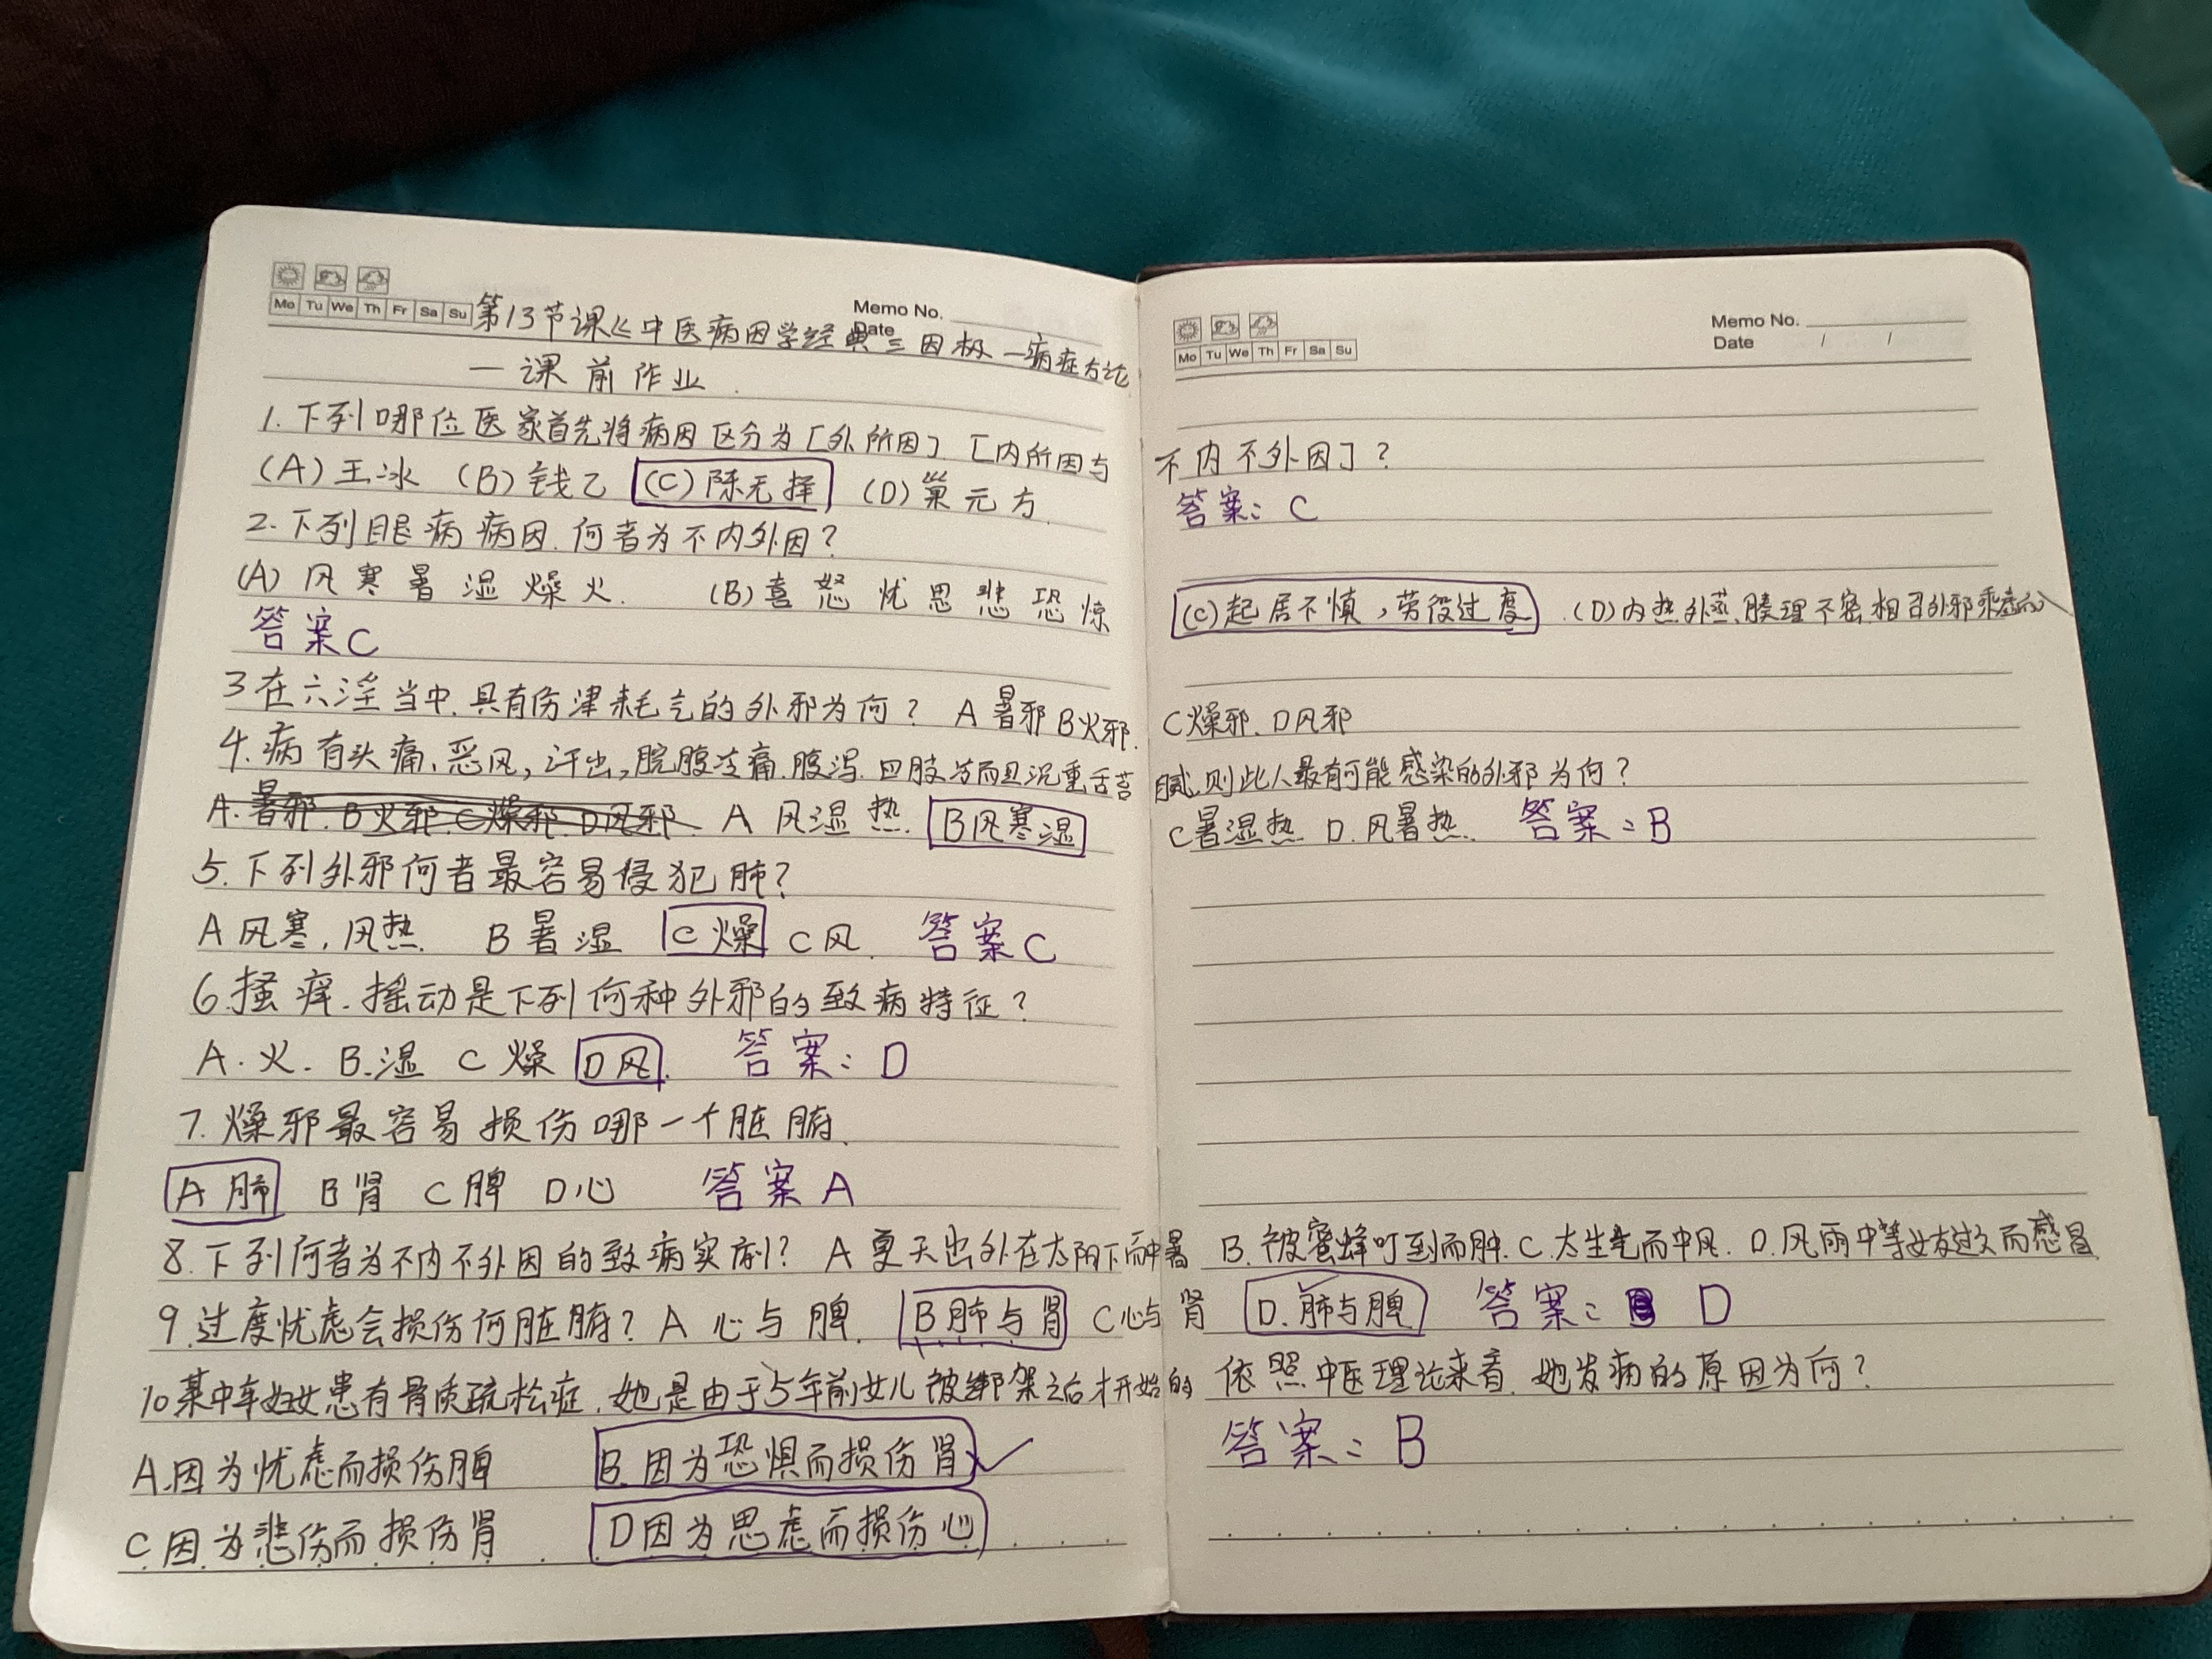 Mo Tu We Th Fr Sa Su
Memo No.
Date
第13节课《中医病因学经典三因极一病症方论
一课前作业
1.下列哪位医家首先将病因区分为[外所因][内所因与不内不外因]?
(A)王冰 (B)钱乙 (C)陈无择 (D)巢元方 答案:C
2.下列眼病病因.何者为不内外因?
(A)风寒暑湿燥火. (B)喜怒忧思悲恐惊 (C)起居不慎,劳役过度 (D)内热外蒸.腠理不密.相召外邪乘虚而入
答案C
3在六淫当中.具有伤津耗气的外邪为何? A暑邪 B火邪. C燥邪. D风邪
4.病有头痛、恶风,汗出,脘腹冷痛.腹泻.四肢冷而且沉重舌苔腻.则此人最有可能感染的外邪为何?
A.暑邪.B火邪.C燥邪.D风邪 A风湿热. B风寒湿 C暑湿热. D.风暑热. 答案:B
5.下列外邪何者最容易侵犯肺?
A风寒,风热. B暑湿 C燥 C风. 答案C
6.搔痒.摇动是下列何种外邪的致病特征?
A.火. B.湿 C燥 D风. 答案:D
7.燥邪最容易损伤哪一个脏腑.
A肺 B肾 C脾 D心 答案A
8.下列何者为不内不外因的致病实例? A夏天出外在太阳下而中暑 B.被蜜蜂叮到而肿.C.太生气而中风. D.风雨中等女友过久而感冒.
9.过度忧虑会损伤何脏腑? A心与脾. B肺与肾 C心与肾 D.肺与脾. 答案: D
10某中年妇女患有骨质疏松症.她是由于5年前女儿被绑架之后才开始的 依照中医理论来看.她发病的原因为何?
A.因为忧虑而损伤脾 B.因为恐惧而损伤肾 答案:B
C因为悲伤而损伤肾 D因为思虑而损伤心
Mo Tu We Th Fr Sa Su
Memo No.
Date / /